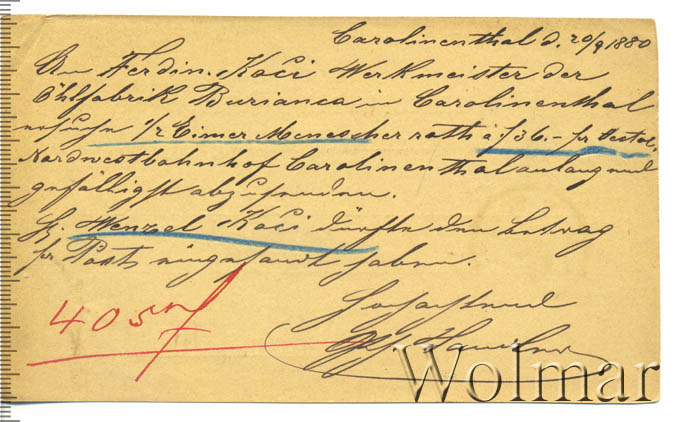 Carolinenthal d. 20/9 1880
An Ferdin. Koči Werkmeister der
Öhlfabrik Burianca in Carolinenthal
ersuche 1/2 Eimer Menescher roth à f 36.- pr Hectol.
Nordwestbahnhof Carolinenthal anlangend
gefälligst abzusenden.
H. Wenzel Koči dürfte den Betrag
pr Posts eingesandt haben.
Hochachtend
405
Wolmar